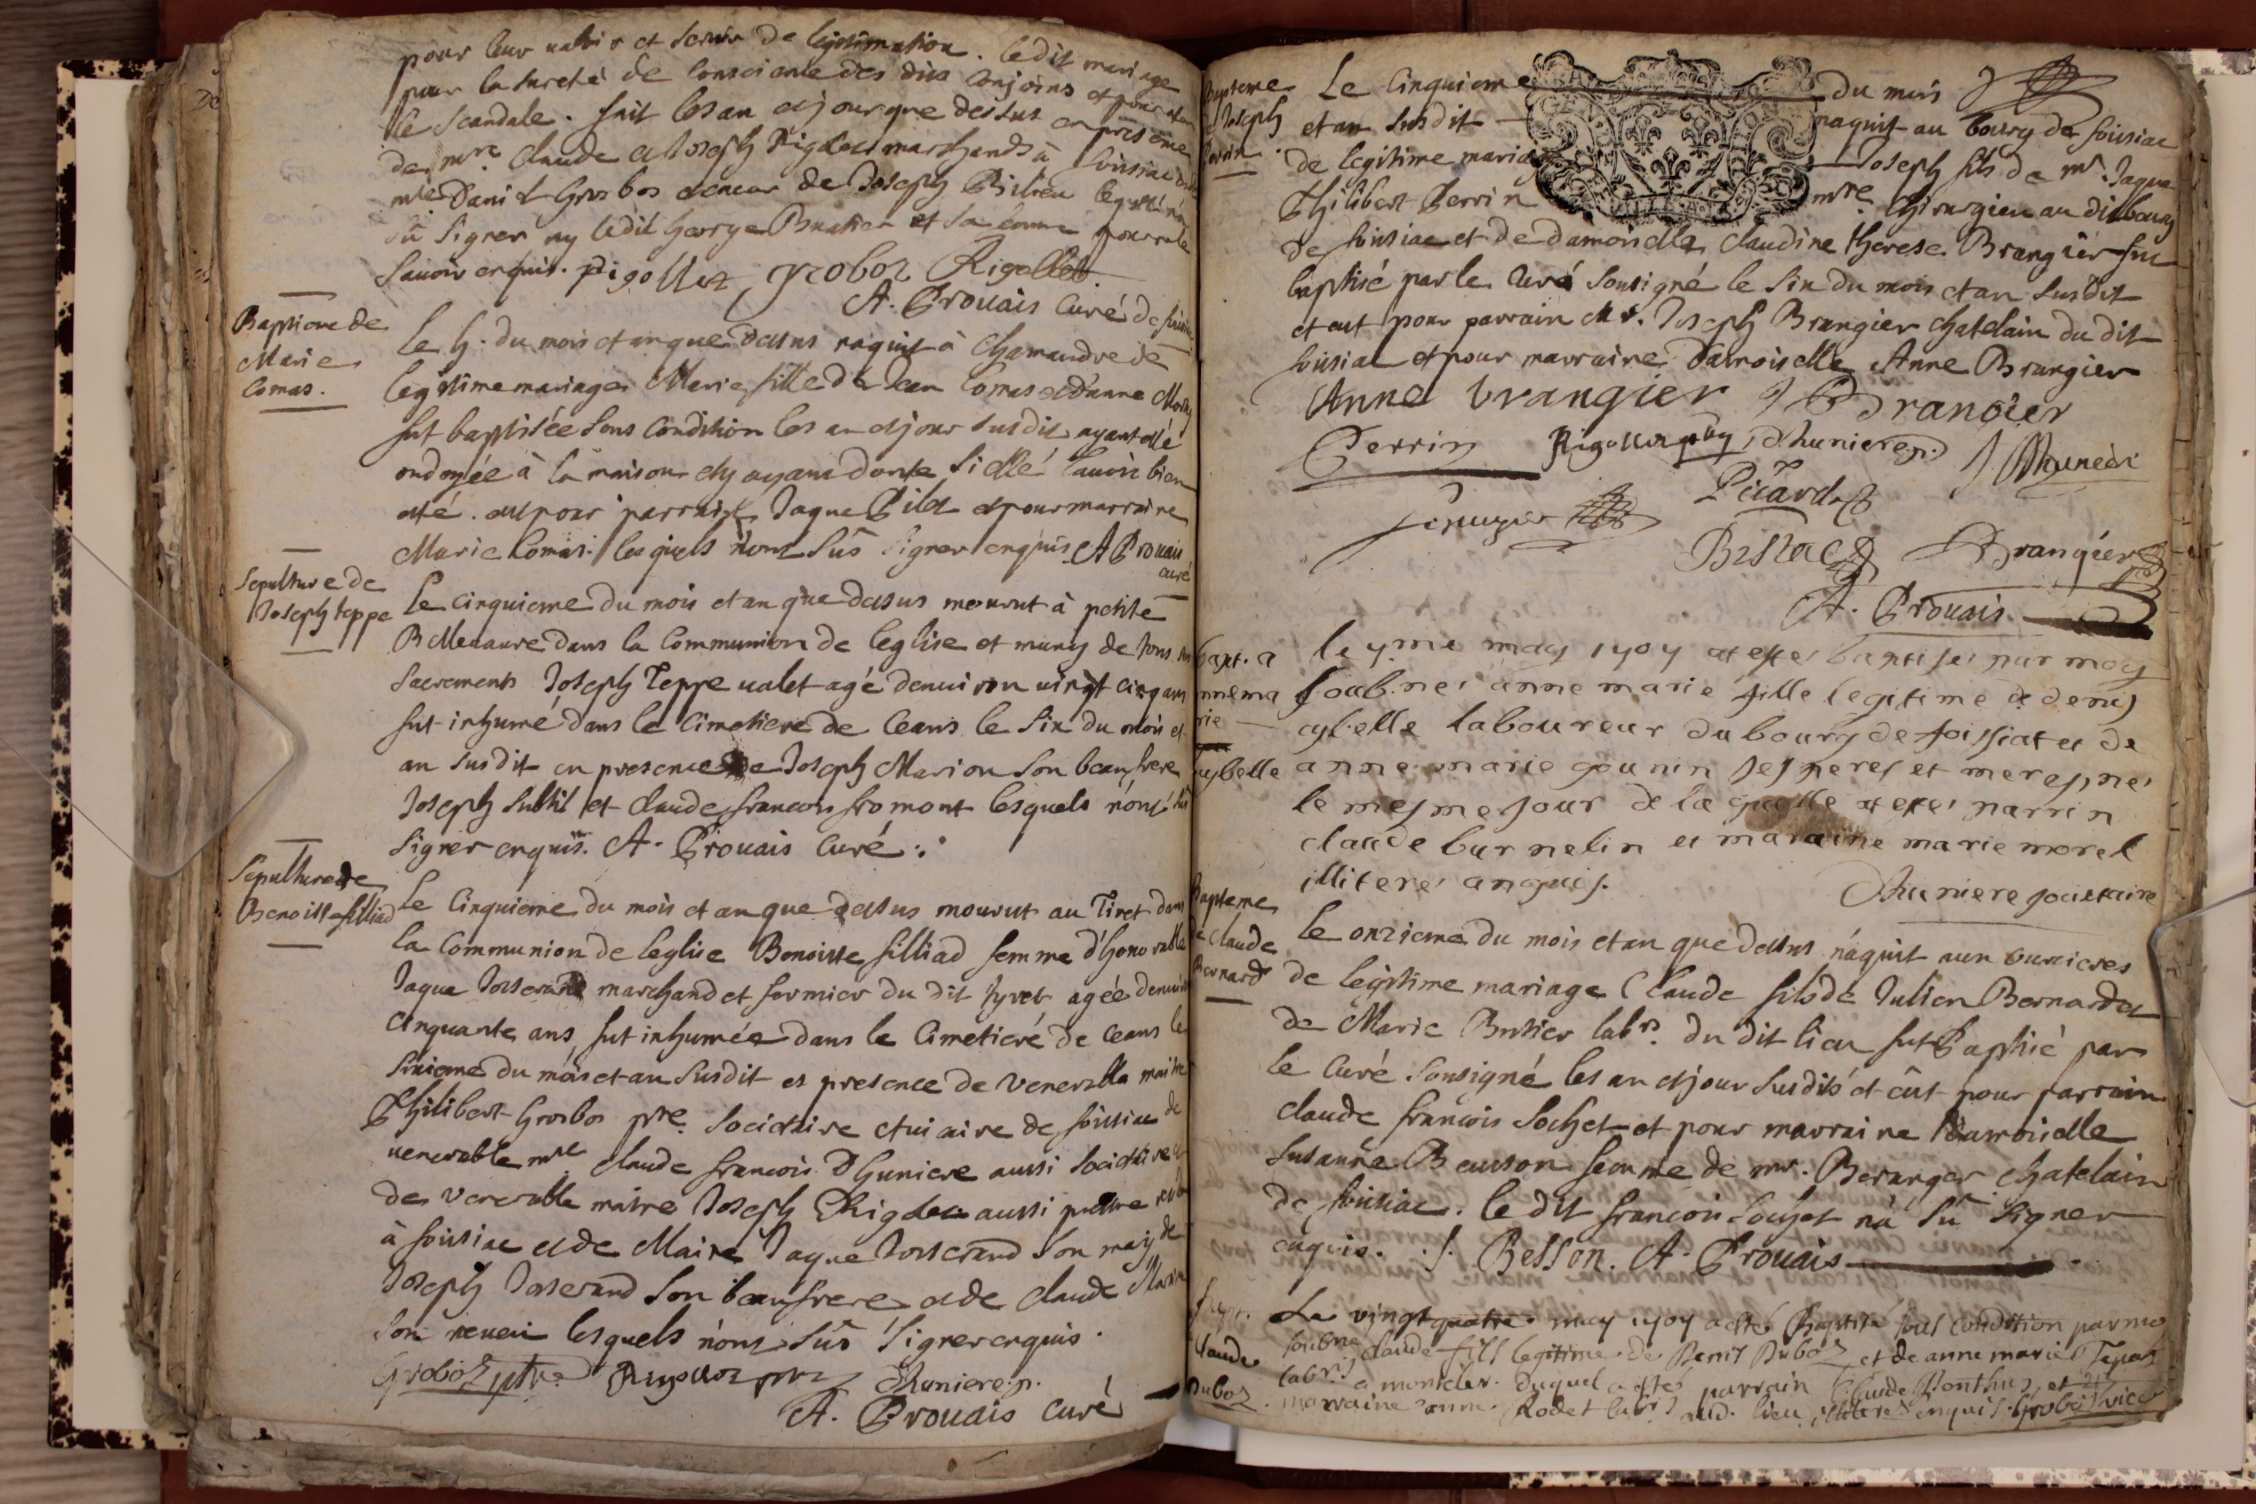 pour leur valoir et servir de legitimation. ledit mariage
pour la sureté de conscience des dits conjoins et pour
le scandale. fait les an et jour que dessus en presence
de mre claude et Joseph Rigolet marchands à foissiac
mre Grosbos de Joseph
sû signer ny ledit George et sa femme pour ne le
savoir enquis. Rigollet grobox Rigollet
A. Prouais curé de
Baptiome de
Marie
Comas.
le 4. du mois et an que dessus naquit à chamandre de
legitime mariage Marie fille de Jean Comas et d'anne
fut baptisée sous condition les an et jour susdit ayant esté
ondoyée à la maison et y ayant doute si elle lavoit bien
eté. eut pour parrain Jaque Pilet et pour marraine
Marie Comas. lesquels n'ont sus signer enquis. A Prouais
curé
Sepulture de
Joseph teppe
Le cinquieme du mois et an que dessus mourut à petite
Bellevavre dans la Communion de leglise et muny de tous
sacrements Joseph Teppe valet agé denviron vingt cinq ans
fut inhumé dans le cimetiere de ceans le six du mois et
an susdit en presence de Joseph Marion son beau frere
Joseph Subtil et claude francois fromont lesquels n'ont
signer enquis. A. Prouais Curé
Sepulture de
Benoiste filliad
Le Cinquieme du mois et an que dessus mourut au Tiret dans
la Communion de leglise Benoiste filliad femme d'honorable
Jaque Josserand marchand et fermier du dit tyret agée denviron
cinquante ans, fut inhumée dans le Cimetiere de ceans le
sixieme du mois et an susdit en presence de venerable maitre
Philibert Grosbos pre. societaire et vicaire de foissiac de
venerable mre claude francois Dhuniere aussi societaire
de venerable maitre Joseph Rigolet aussi pretre
à foissiac et de Maitre Jaque Josserand son mary de
Joseph Josserand son beaufrere et de claude
son neveu lesquels n'ont sus signer enquis.
Grobox ptre Rigollot Dhuniere.p.
A. Prouais curé
Bapteme
Joseph
Perrin.
Le Cinquieme du mois
et an susdit naquit au bourg de foissiac
de legitime mariage Joseph fils de mr. Jaque
Philibert Perrin mre. chirurgien au dit bourg
de foissiac et de damoiselle claudine therese Brangier fut
baptisé par le curé sousigné le six du mois et an susdit
et eut pour parrain Mr. Joseph Brangier chatelain du dit
foissiac et pour marraine Damoiselle Anne Brangier
Anne brangier J Brangier
Perrin Dhuniere.p.
Picard
Brangier
A. Prouais
bapt. a
nne ma
rie
cybelle
le 7me may 1707 at esté baptisé par moy
soubné anne marie fille legitime de denis
cybelle laboureur du bourg de foissiat et de
anne marie gounin ses peres et meres, né
le mesme jour de la quelle at esté parrin
claude burnelin et maraine marie morel
illiteré anquis.
Dhuniere societaire
Bapteme
de claude
Bernard
Le onzieme du mois et an que dessus náquit aux
de legitime mariage Claude fils de Julien Bernard et
de Marie labrs. du dit lieu fut baptisé par
le Curé sousigné les an et jour susdits et eut pour parrain
claude francois Sochet et pour marraine Damoiselle
Susanne Besson femme de mr. Beranger chatelain
de foissiac. le dit francois Sochet n'a sû signer
enquis. S. Besson. A. Prouais
bapt.
claude
Dubox
Le vingtquatre may 1707 a esté Baptisé sous condition par moy
soubné claude fils legitime de Denis Dubox et de anne marie
labrs a montcler. duquel a esté parrain Claude et
marraine anne Rodet labrs aud. lieu illiteres enquis. Grobox vice